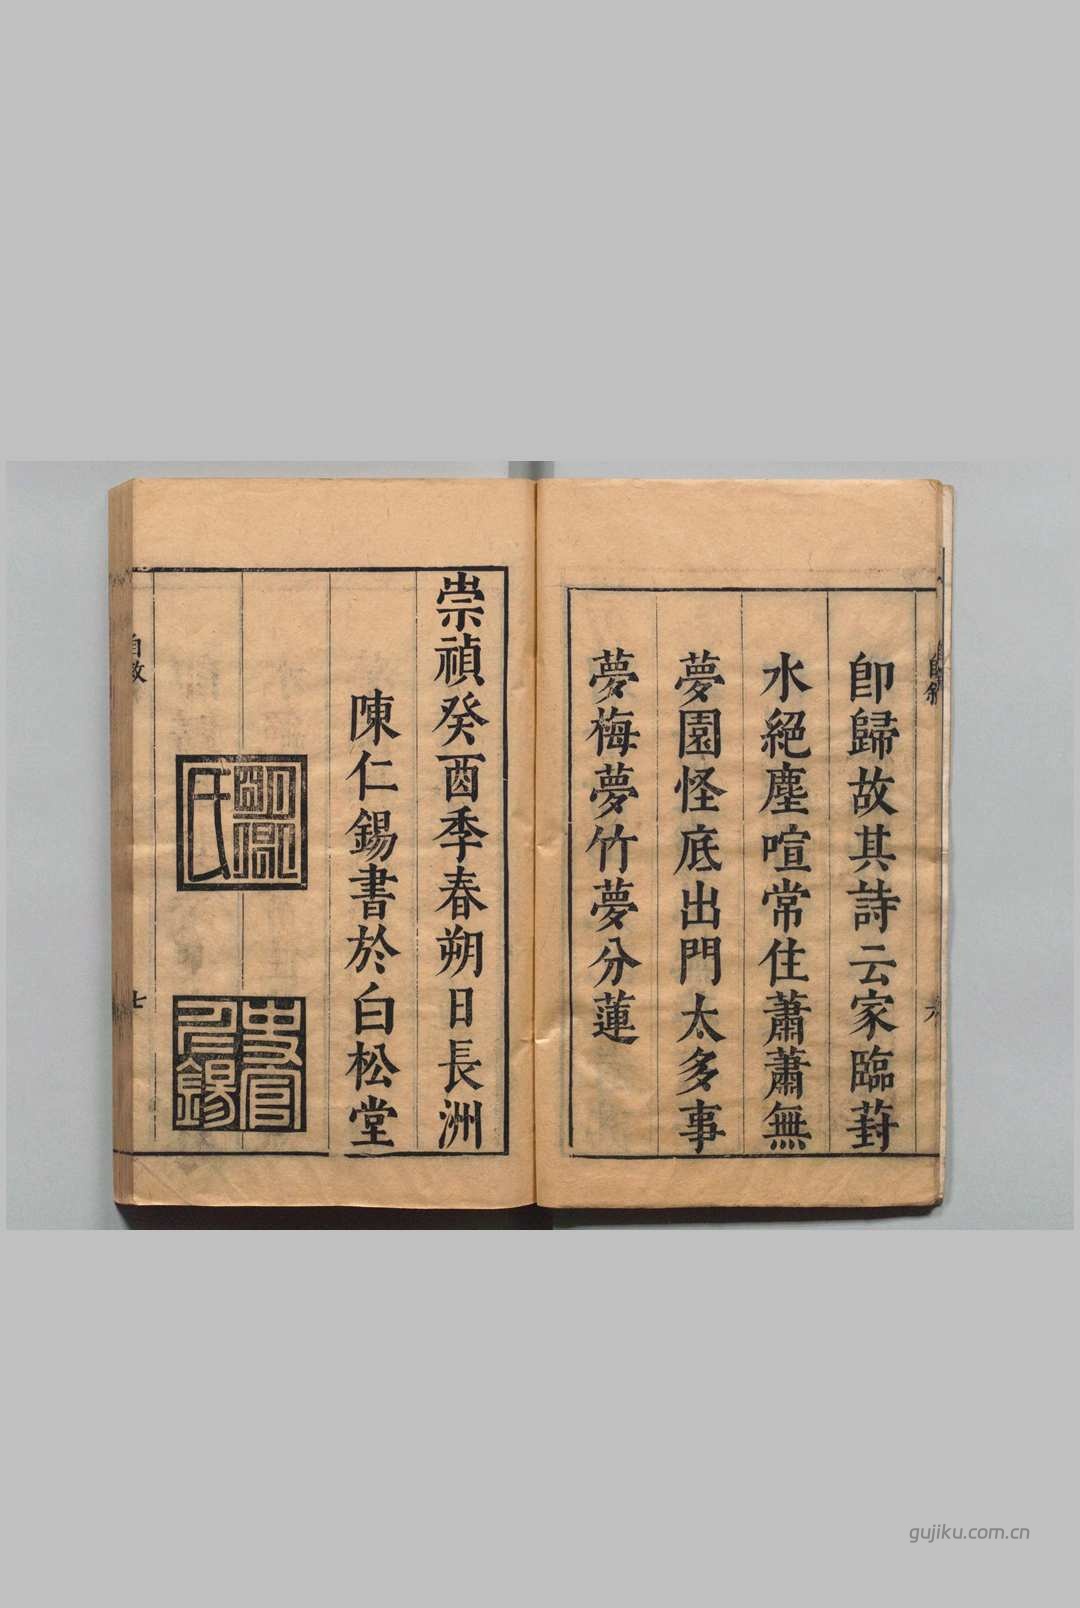 卽歸故其詩云家臨葑
水絕塵喧常住蕭蕭無
夢園怪底出門太多事
夢梅夢竹夢分蓮
自敘
六
崇禎癸酉季春朔日長洲
陳仁錫書於白松堂
明卿氏
史官仁錫
自敘
七
gujiku.com.cn